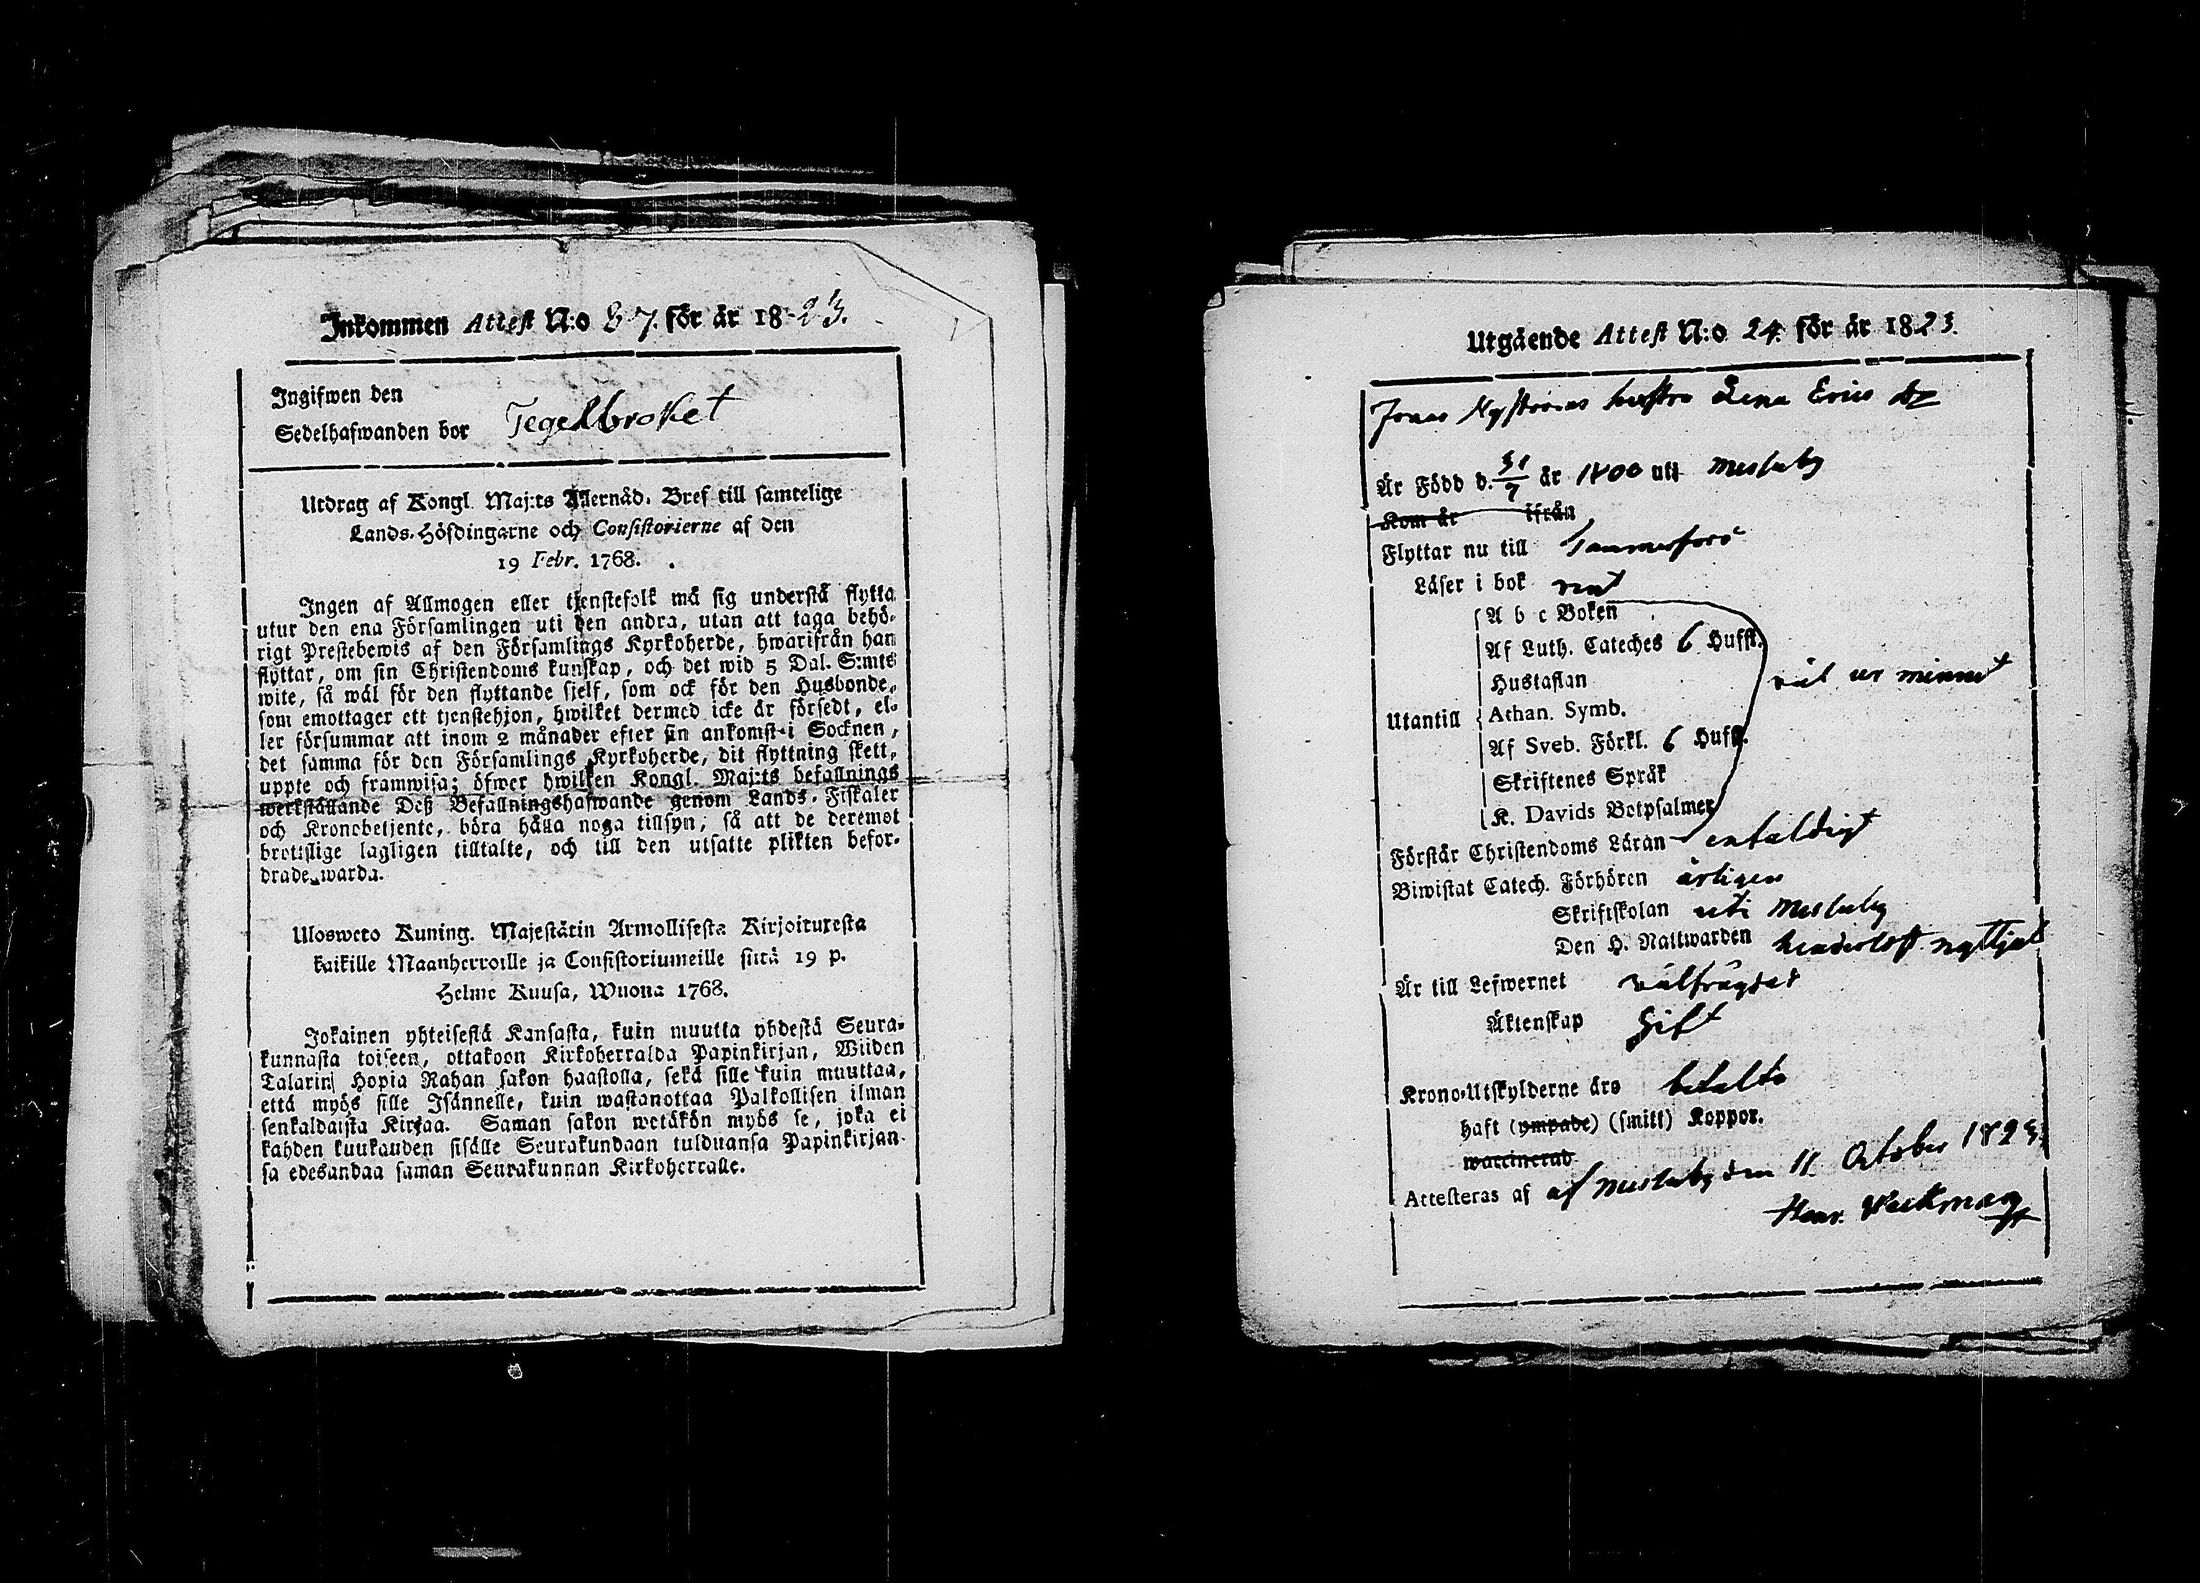 Inkommen Attest N:o 87. för år 1823.
Ingifwen den
Sedelhafwanden bor Tegelbroket
Utdrag af Kongl. Maj:ts Allernåd. Bref till samtelige
Lands-Höfdingarne och Consistorierne af den
19 Febr. 1768.
Ingen af Allmogen eller tjenstefolk må sig understå flytta
utur den ena Församlingen uti den andra, utan att taga behö-
rigt Prestebewis af den Församlings Kyrkoherde, hwarifrån han
flyttar, om sin Christendoms kunskap, och det wid 5 Dal. S:mts
wite, så wäl för den flyttande sjelf, som ock för den Husbonde,
som emottager ett tjenstehjon, hwilket dermed icke är försedt, el-
ler försummar att inom 2 månader efter sin ankomst i Socknen,
det samma för den Församlings Kyrkoherde, dit flyttning skett,
uppte och framwisa; öfwer hwilken Kongl. Maj:ts befallnings
werkställande Deß Befallningshafwande genom Lands-Fiskaler
och Kronobetjente, böra hålla noga tillsyn, så att de deremot
brottslige lagligen tilltalte, och till den utsatte plikten befor-
drade warda.
Ulosweto Kuning. Majestätin Armollisesta Kirjoituxesta
kaikille Maanherroille ja Consistoriumeille siitä 19 p.
Helme Kuusa, Wuona 1768.
Jokainen yhteisestä Kansasta, kuin muutta yhdestä Seura-
kunnasta toiseen, ottakoon Kirkoherralda Papinkirjan, Wiiden
Talarin Hopia Rahan sakon haastolla, sekä sille kuin muuttaa,
että myös sille Isännelle, kuin wastanottaa Palkollisen ilman
senkaldaista Kirjaa. Saman sakon wetäkön myös se, joka ei
kahden kuukauden sisälle Seurakundaan tulduansa Papinkirjan-
sa edesandaa saman Seurakunnan Kirkoherralle.
Utgående Attest N:o 24. för år 1823.
Jonas Nyströms hustru Lena Erics dr
Är Född d. 31/7 år 1800 uti Messuby
Kom år ifrån
Flyttar nu till Tammerfors
Läser i bok rent
A b c Boken
Af Luth. Cateches 6 Hufst.
Hustaflan
väl ur minnet
Utantill Athan. Symb.
Af Sveb. Förkl. 6 Hufst.
Skriftenes Språk
K. Davids Botpsalmer
Förstår Christendoms Läran enfaldigt
Biwistat Catech. Förhören årligen
Skriftskolan uti Messuby
Den H. Nattwarden hinderlöst nyttjat
Är till Lefwernet välfrägdad
Äktenskap Gift
Krono-Utskylderne års betalte
haft (ympade) (smitt) Koppor.
waccinerad
Attesteras af af Messuby den 11 October 1823
Henr. Weckman